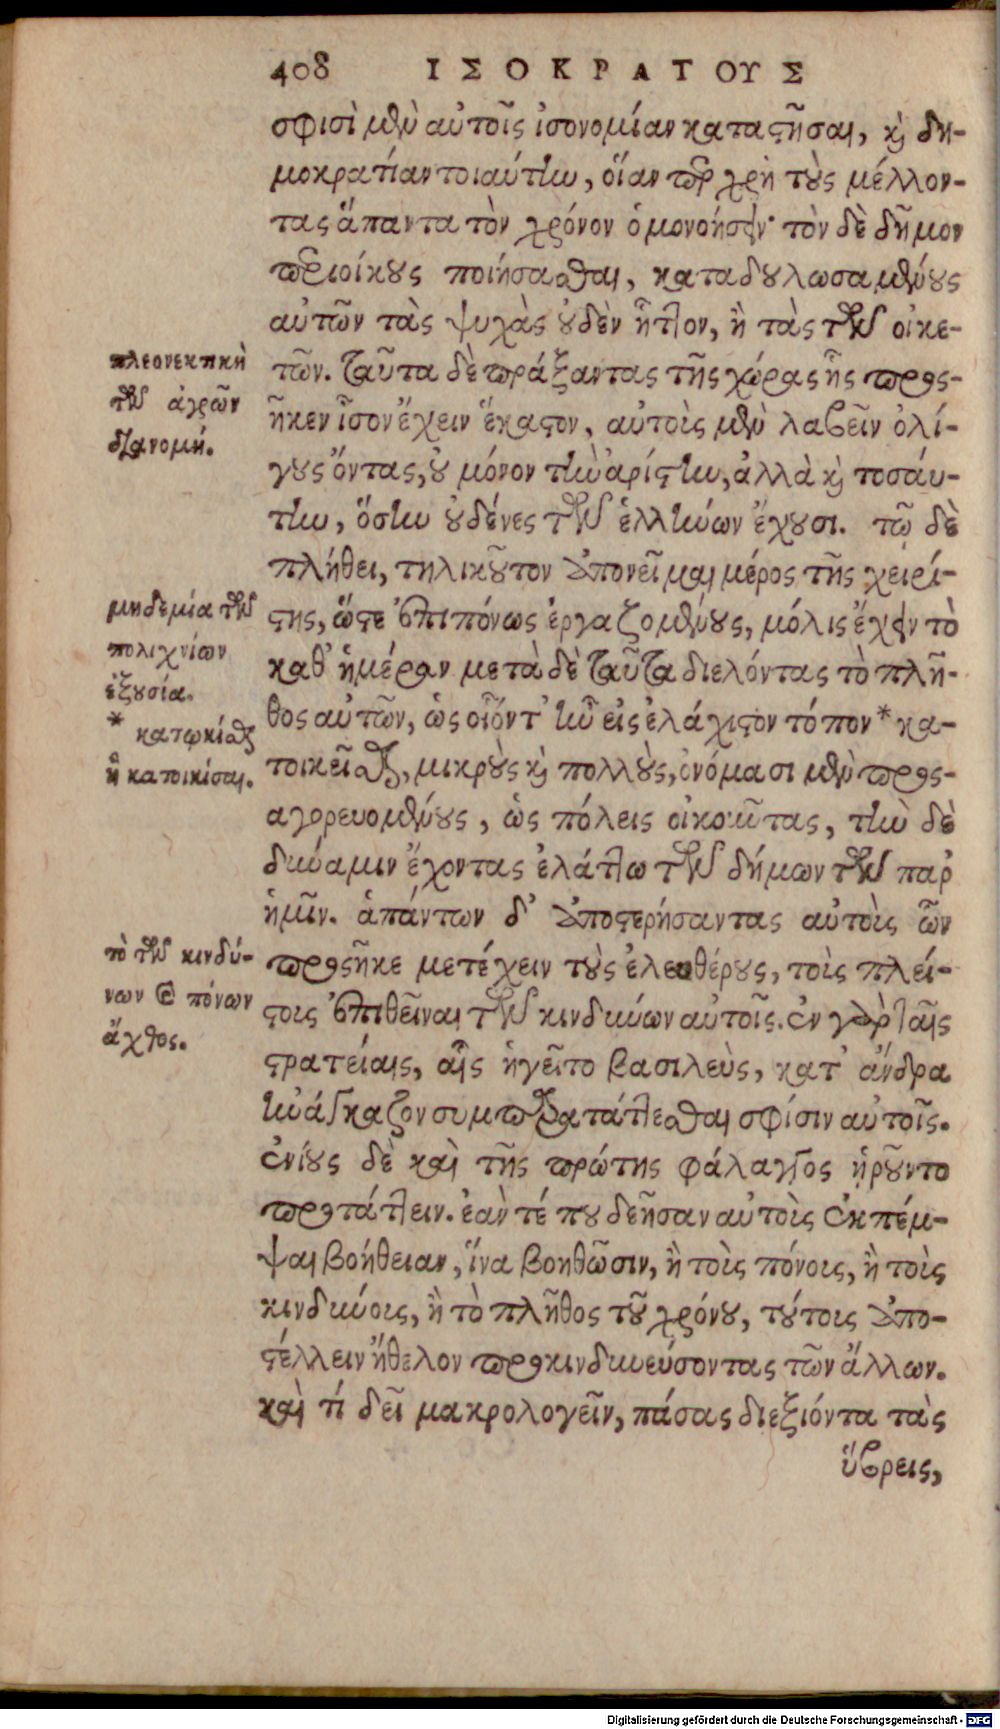 408 ΙΣΟΚΡΑΤΟΥΣ
σφισὶ μὲν αὐτοῖς ἰσονομίαν καταστῆσαι, καὶ δη-
μοκρατίαν τοιαύτην, οἵαν περ χρὴ τοὺς μέλλον-
τας ἅπαντα τὸν χρόνον ὁμονοήσειν· τὸν δὲ δῆμον
περιοίκους ποιήσασθαι, καταδουλωσαμένους
αὐτῶν τὰς ψυχὰς οὐδὲν ἧττον, ἢ τὰς τῶν οἰκε-
τῶν. ταῦτα δὲ πράξαντας τῆς χώρας ἧς προς-
ῆκεν ἶσον ἔχειν ἕκαστον, αὐτοὺς μὲν λαβεῖν ὀλί-
γους ὄντας, οὐ μόνον τὴν ἀρίστην, ἀλλὰ καὶ τοσαύ-
την, ὅσην οὐδένες τῶν ἑλλήνων ἔχουσι. τῷ δὲ
πλήθει, τηλικοῦτον ἀπονεῖμαι μέρος τῆς χειρί-
στης, ὥστε ἐπιπόνως ἐργαζομένους, μόλις ἔχειν τὸ
καθ' ἡμέραν μετὰ δὲ ταῦτα διελόντας τὸ πλῆ-
θος αὐτῶν, ὡς οἷόντ' ἦν εἰς ἐλάχιστον τόπον * κα-
τοικεῖσθαι, μικροὺς καὶ πολλοὺς, ὀνόμασι μὲν προς-
αγορευομένους, ὡς πόλεις οἰκοῦντας, τὴν δὲ
δύναμιν ἔχοντας ἐλάττω τῶν δήμων τῶν παρ'
ἡμῖν. ἁπάντων δ' ἀποστερήσαντας αὐτοὺς ὧν
προςῆκε μετέχειν τοὺς ἐλευθέρους, τοὺς πλεί-
στους ἐπιθεῖναι τῶν κινδύνων αὐτοῖς. ἐν γὰρ ταῖς
στρατείαις, αἷς ἡγεῖτο βασιλεὺς, κατ' ἄνδρα
ἠνάγκαζον συμπαρατάττεσθαι σφίσιν αὐτοῖς.
ἐνίους δὲ καὶ τῆς πρώτης φάλαγγος ᾑροῦντο
προτάττειν. ἐὰν τέ που δεῆσαν αὐτοὺς ἐκπέμ-
ψαι βοήθειαν, ἵνα βοηθῶσιν, ἢ τοὺς πόνους, ἢ τοὺς
κινδύνους, ἢ τὸ πλῆθος τοῦ χρόνου, τούτους ἀπο-
στέλλειν ἤθελον προκινδυνεύσοντας τῶν ἄλλων.
καὶ τί δεῖ μακρολογεῖν, πάσας διεξιόντα τὰς
ὕβρεις,
πλεονεκτικὴ
τῶν ἀγρῶν
διανομή.
μηδεμία τῶν
πολιχνίων
ἐξουσία.
* κατῳκίσθαι
ἢ κατοικίσαι.
τὸ τῶν κινδύ-
νων καὶ πόνων
ἄχθος.
Digitalisierung gefördert durch die Deutsche Forschungsgemeinschaft - DFG